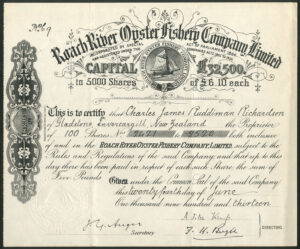 Roach River Oyster Fishery Company Limited
INCORPORATED BY SPECIAL ACT OF PARLIAMENT
CAPITAL £32,500
in 5000 Shares of £6.10 each
This is to certify that Charles James Ruddiman Richardson
of Gladstone Invercargill, New Zealand the Proprietor
of 100 Shares No. both inclusive
of and in the ROACH RIVER OYSTER FISHERY COMPANY, LIMITED, subject to the
Rules and Regulations of the said Company; and that up to this
day there has been paid in respect of each such Share the sum of
Five Pounds
Given under the Common Seal of the said Company
this Twenty fourth day of June
One thousand nine hundred and thirteen
Secretary
DIRECTORS